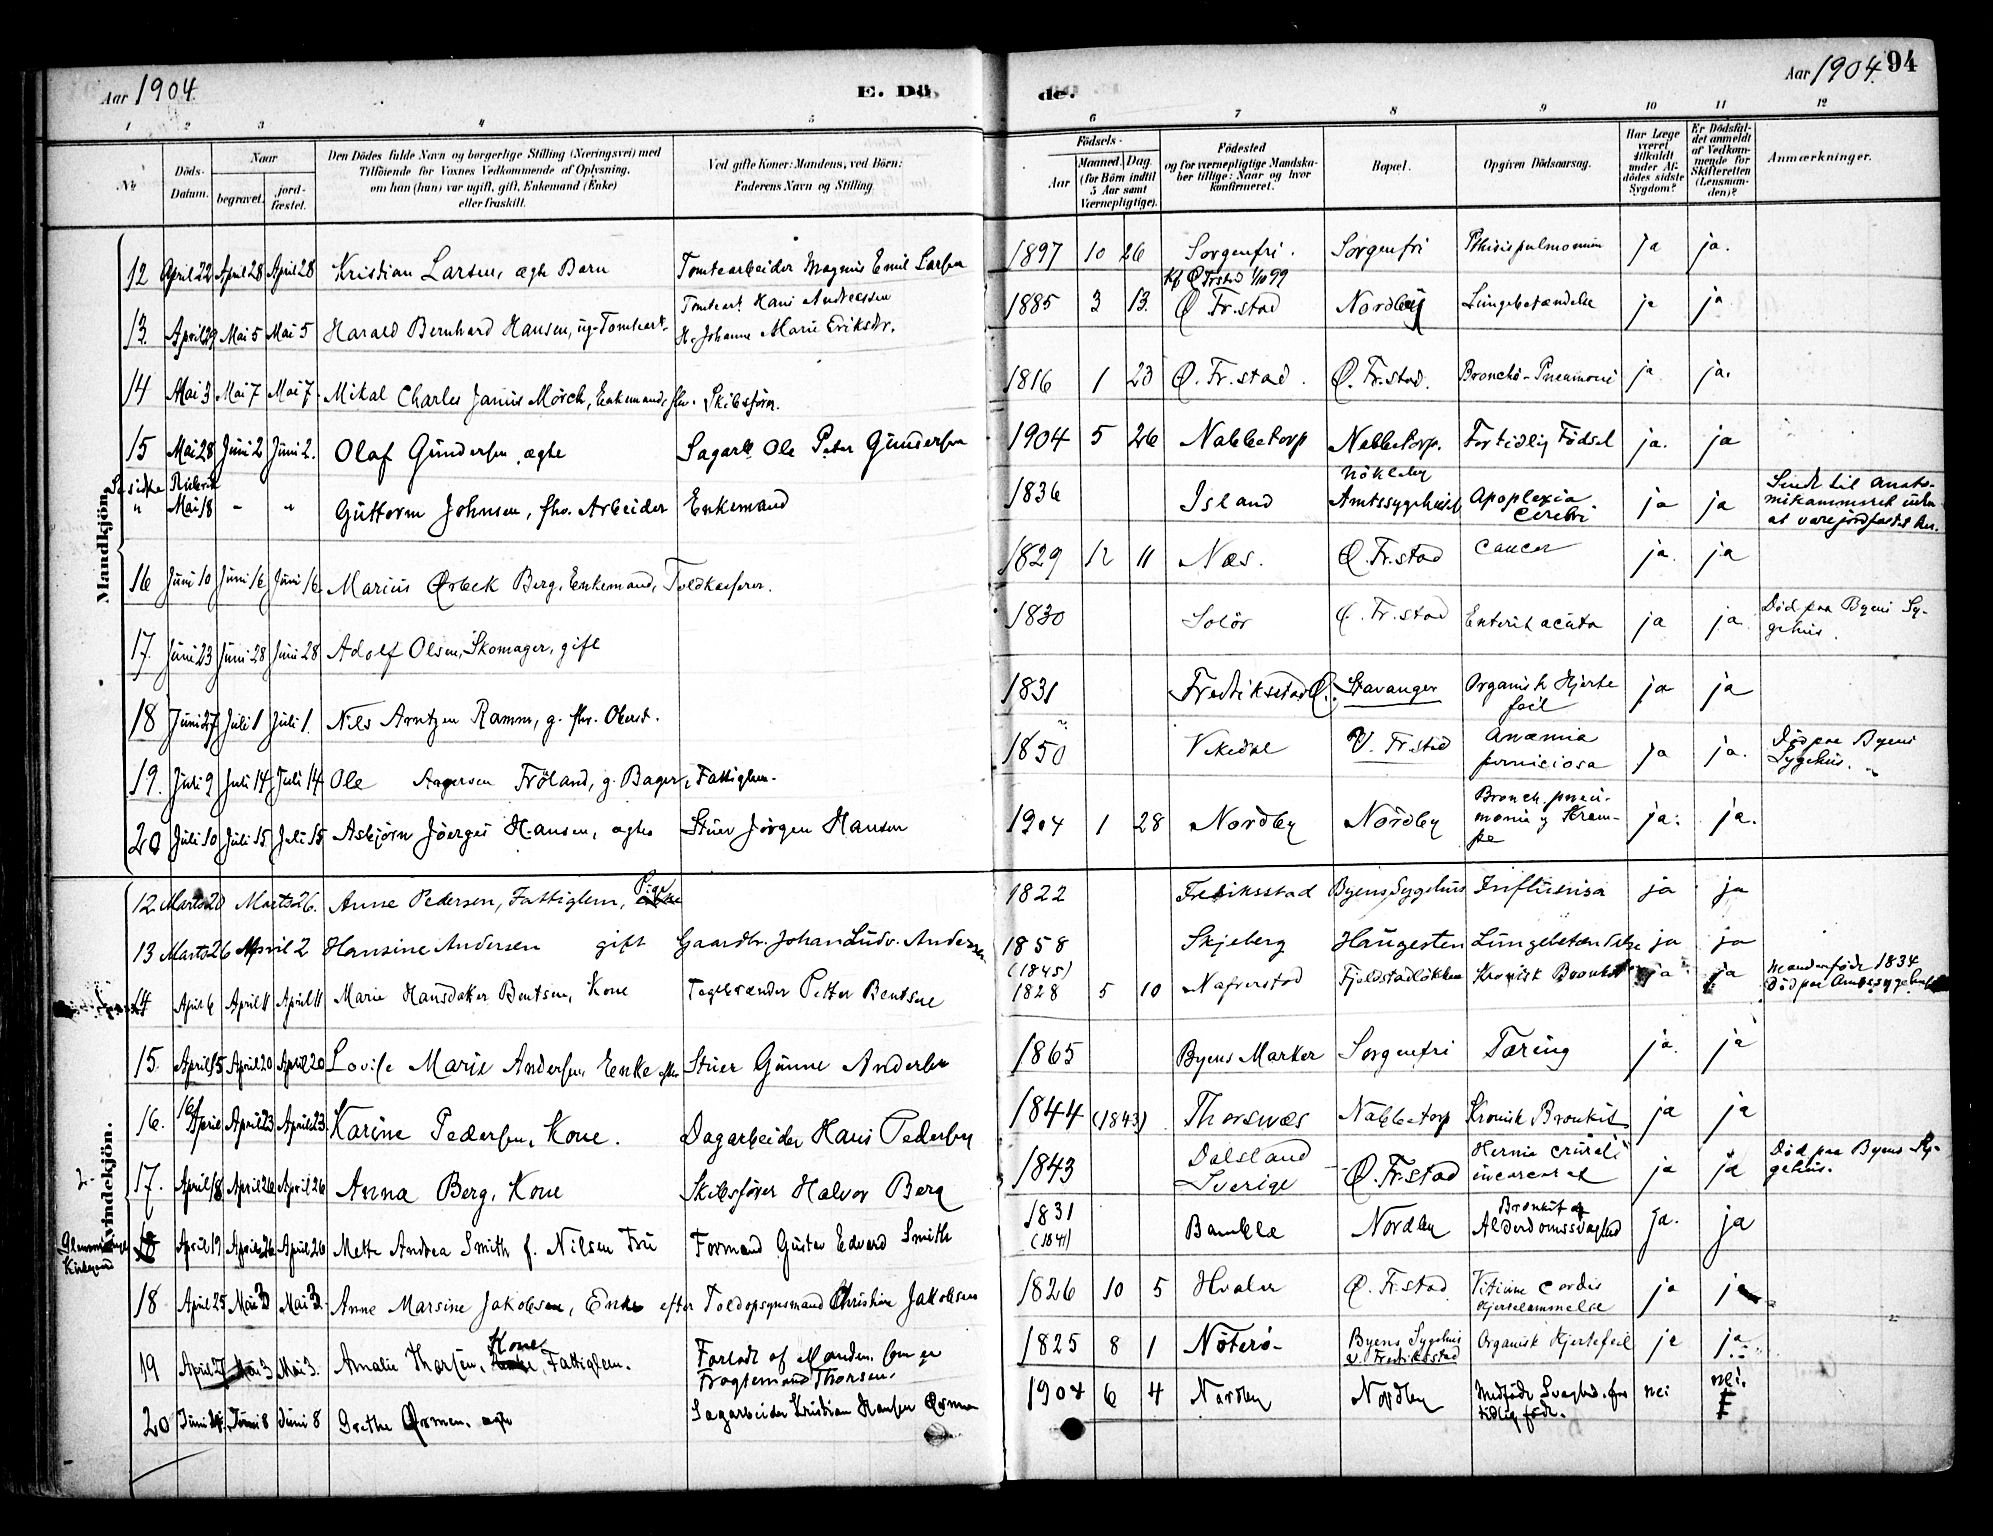 Aar 1904. E. Dö de. Aar 1904. 94
1 2 3 4 5 6 7 8 9 10 11 12
No. Döds-Datum. Naar begravet. jord-fæstet. Den Dödes fulde Navn og borgerlige Stilling (Næringsvei) med Tilföiende for Voxnes Vedkommende af Oplysning, om han (hun) var ugift, gift, Enkemand (Enke) eller fraskilt. Ved gifte Koner: Mandens, ved Börn: Faderens Navn og Stilling Födsels- Aar Maaned. Dag. (for Börn indtil 5 Aar samt Værnepligtige). Födested og for værnepligtige Mandskaber tillige: Naar og hvor konfirmeret. Bopæl. Opgiven Dödsaarsag. Har Læge været tilkaldt under Afdödes sidste Sygdom? Er Dödsfaldet anmeldt af Vedkommende for Skifteretten (Lensmanden)? Anmærkninger.
Mandkjön.
12 April 22 April 28 April 28 Kristian Larsen, ægte Barn Tomtearbeider Magnus Emil Larsen 1897 10 26 Sorgenfri. Sorgenfri Phtisis pulmonum ja ja.
13. April 29 Mai 5 Mai 5 Harald Bernhard Hansen, ug. Tomteart. Tomteart. Hans Andreassen H. Johanne Marie Eriksdr. 1885 3 13. Kf Ø Frstad 1/10 99 Ø Fr.stad Nordby Lungebetændelse ja ja
14 Mai 3 Mai 7 Mai 7. Mikal Charles Janus Mörch, Enkemand, fhv. Skibsförer. 1816 1 23 Ø. Fr.stad. Ø. Fr.stad. Broncho-Pneumoni ja ja.
15 Mai 28 Juni 2 Juni 2. Olaf Gundersen ægte Sagarb. Ole Peter Gundersen 1904 5 26 Nabbetorp Nabbetorp. Fortidlig Födsel ja. ja
Mai 18 " " Guttorm Johnsen, fhv. Arbeider Enkemand 1836 Island Nökleby Amtssygehus Apoplexia Cerebri ja ja Sendt til Anatomikammeret uden at være jordfæstet her.
16 Juni 10 Juni 16 Juni 16. Marius Ørbek Berg, Enkemand, Toldkasserer. 1829 12 11 Næs. Ø. Fr.stad Cancer ja. ja
17. Juni 23 Juni 28 Juni 28 Adolf Olsen, Skomager, gift 1830 Solör Ø. Fr.stad Enterit acuta ja ja Död paa Byens Sygehus.
18 Juni 27 Juli 1 Juli 1. Nils Arntzen Ramm, g. fhv. Oberst. 1831 Fredriksstad Ø. Stavanger Organisk Hjertefeil ja ja
19. Juli 9 Juli 14 Juli 14 Ole Aagesen Fröland, g. Bager, Fattiglem. 1850 Vikedal V. Fr.stad Anæmia perniciosa ja ja. Död paa Byens Sygehus.
20 Juli 10 Juli 15 Juli 15 Asbjörn Jörges Hansen, ægte Stuer Jörgen Hansen 1904 1 28 Nordby Nordby Bronch. pneumonia og Krampe ja. ja.
Kvindekjön.
12. Marts 20 Marts 26. Anne Pedersen, Fattiglem, Pige 1822 Fredriksstad Byens Sygehus Influensa ja ja
13 Marts 26 April 2 Hansine Andersen gift Gaardbr. Johan Ludv. Andersen 1858 Skjeberg Haugesten Lungebetændelse ja ja
14 April 6 April 11 April 11 Marie Hansdatter Bentsen, Kone Teglbrænder Petter Bentsen (1845) 1828 5 10 Nafverstad Fjeldstadlökken Kronisk Bronkit ja ja Manden födt 1834 Död paa Amtssygehuset
15. April 15 April 20 April 20 Lovise Marie Andersen Enke efter Stuer Gunne Andersen 1865 Byens Marker Sorgenfri Tæring ja. ja
16. 16/April April 23 April 23 Karine Pedersen, Kone. Dagarbeider Hans Pedersen 1844 (1843) Thorsnæs Nabbetorp Kronisk Bronkit ja ja
17. April 18 April 26 April 26 Anna Berg, Kone Skibsförer Halvor Berg 1843 Dalsland Sverige Ø. Fr.stad Hernia crurali incarcerat ja ja Död paa Byens Sygehus.
Kirkegaard April 19 April 26 April 26 Mette Andrea Smith f. Nilsen Fru Formand Gustav Edvard Smith 1831 (1841) Bamble Nordby Bronkit og Alderdomssvaghed ja. ja
18 April 25 Mai 3 Mai 3. Anne Marsine Jakobsen, Enke efter Toldopsynsmand Christian Jakobsen 1826 10 5 Hvaler Ø. Fr.stad Vitium Cordis Hjertelammelse ja ja
19 April 27 Mai 3 Mai 3. Amalie Thorsen, Kone Fattiglem. Forladt af Manden som er Fragtemand Thorsen. 1825 8 1 Nöterö Byens Sygehus V. Fredriksstad Organisk Hjertefeil ja ja.
20 Juni 4. Juni 8 Juni 8 Grethe Ørmen. ægte Sagarbeider Kristian Hansen Ørmen 1904 6 4 Nordby Nordby Medfödt Svaghed. for tidlig födt. nei nei.